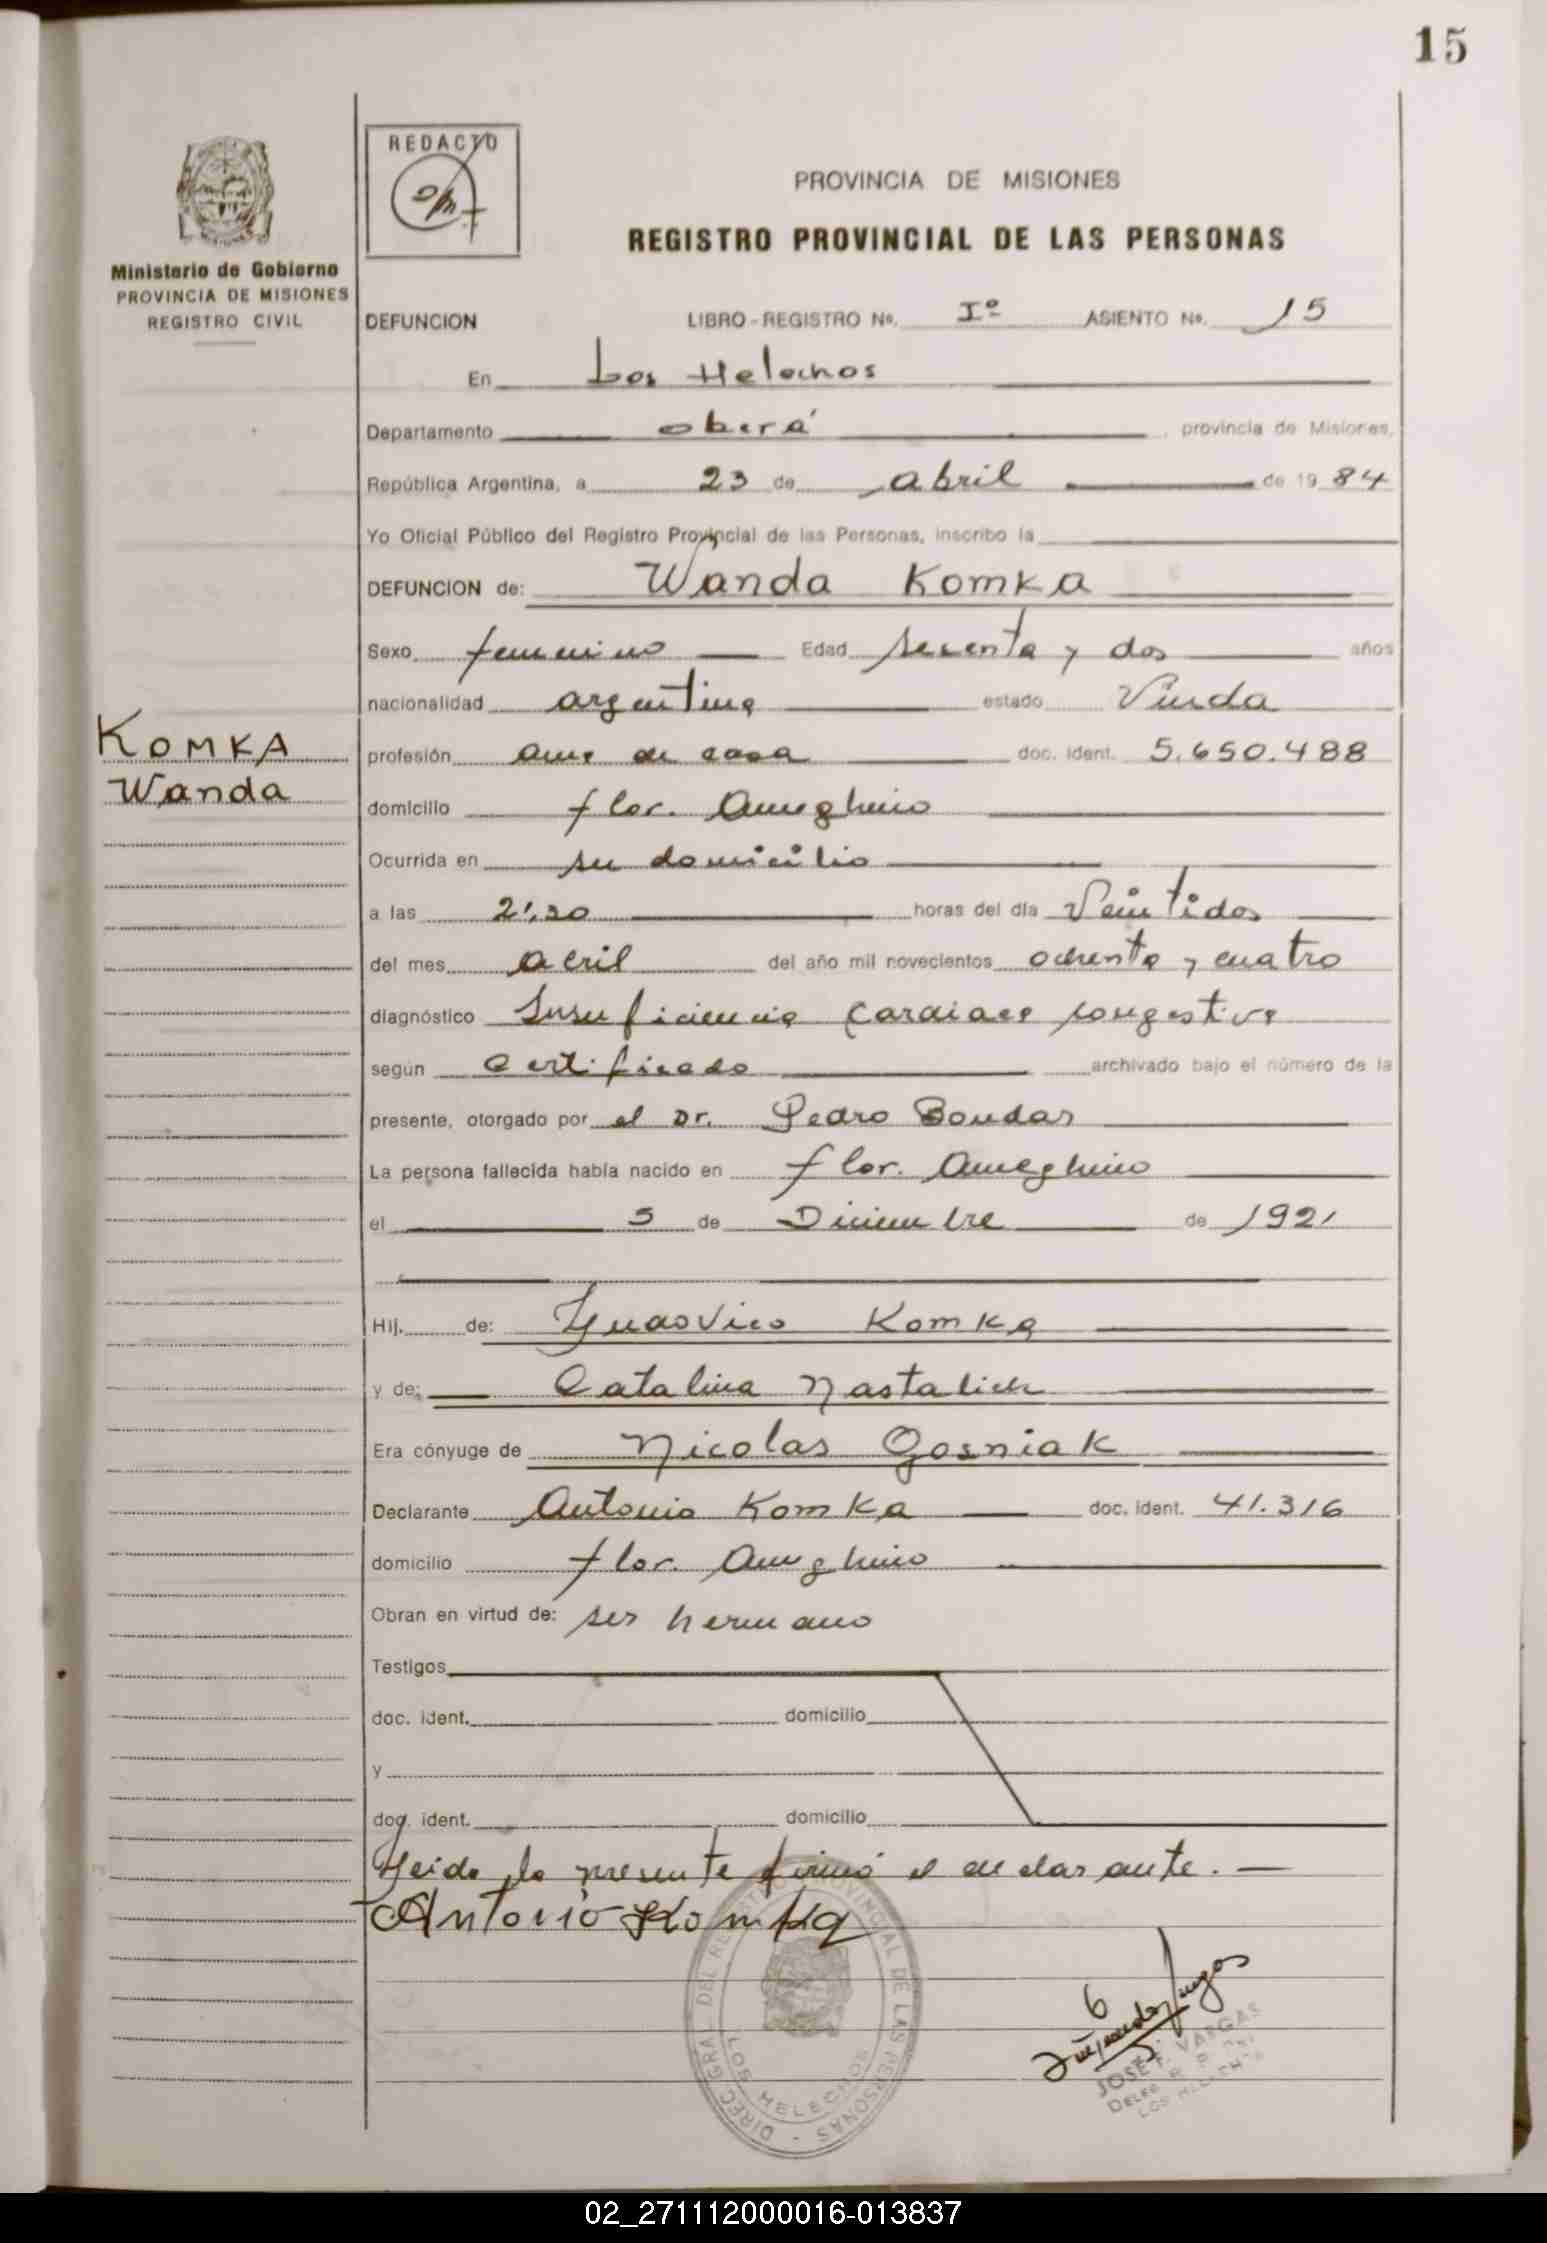 15
REDACTO
PROVINCIA DE MISIONES
REGISTRO PROVINCIAL DE LAS PERSONAS
Ministerio de Gobierno
PROVINCIA DE MISIONES
REGISTRO CIVIL
DEFUNCION LIBRO-REGISTRO No. Iº ASIENTO No. 15
En Los Helechos
Departamento oberá , provincia de Misiones,
República Argentina, a 23 de abril de 1984
Yo Oficial Público del Registro Provincial de las Personas, inscribo la
DEFUNCION de: Wanda Komka
Sexo femenino Edad sesenta y dos años
nacionalidad argentina estado Viuda
KOMKA
Wanda
profesión ama de casa doc. ident. 5.650.488
domicilio flor. Ameghino
Ocurrida en su domicilio
a las horas del día Veintidos
del mes abril del año mil novecientos ochenta y cuatro
diagnóstico Insuficiencia Cardiaca congestiva
según Certificado archivado bajo el número de la
presente, otorgado por el Dr. Pedro Bondar
La persona fallecida había nacido en flor. Ameghino
el de Diciembre de 1921
Hij. de: Komka
y de: Catalina
Era cónyuge de Nicolas Gosniak
Declarante Antonio Komka doc. ident. 41.316
domicilio flor. Ameghino
Obran en virtud de: ser hermano
Testigos
doc. ident. domicilio
y
doc. ident. domicilio
Leida la presente firmó el declarante.
Antonio Komka
DIREC. GRAL. DEL REGISTRO PROVINCIAL DE LAS PERSONAS
LOS HELECHOS
JOSE F. VARGAS
LOS HELECHOS
02_271112000016-013837